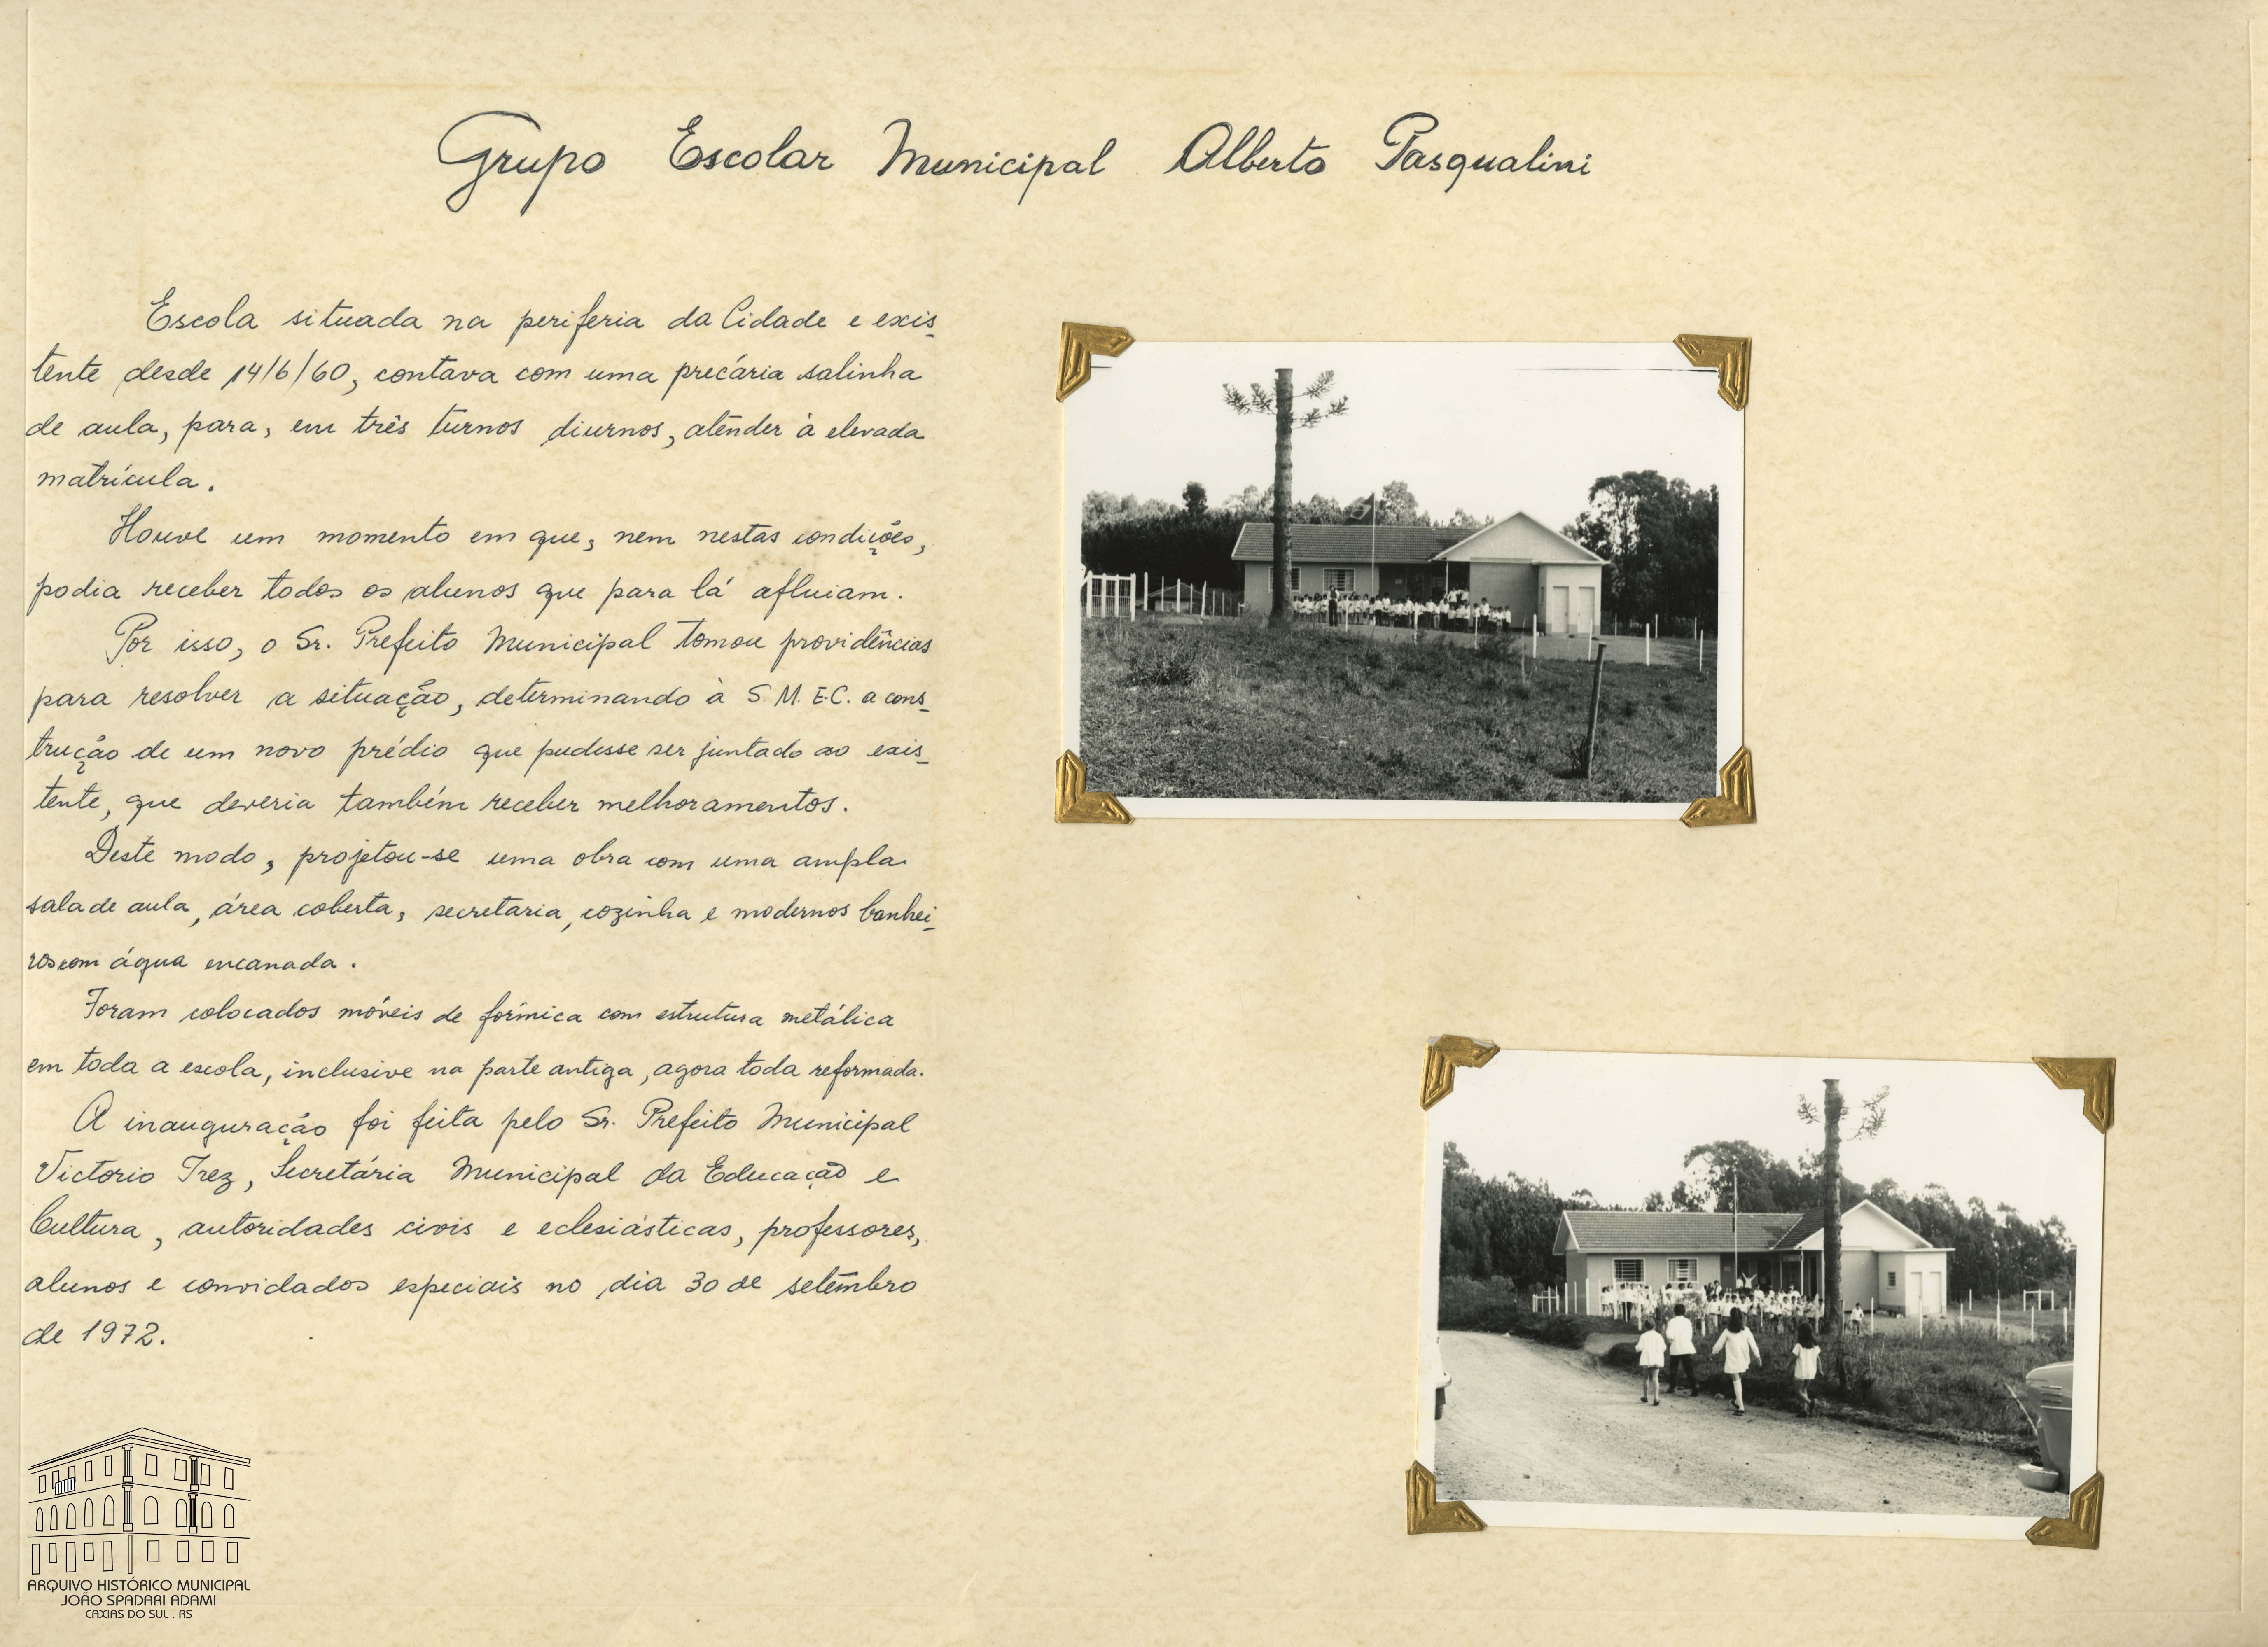 Grupo Escolar Municipal Alberto Pasqualini
Escola situada na periferia da Cidade e exis-
tente desde 14/6/60, contava com uma precária salinha
de aula, para, em três turnos diurnos, atender à elevada
matrícula.
Houve um momento em que, nem nestas condições,
podia receber todos os alunos que para lá afluiam.
Por isso, o Sr. Prefeito Municipal tomou providências
para resolver a situação, determinando à S.M.E.C. a cons-
trução de um novo prédio que pudesse ser juntado ao exis-
tente, que deveria também receber melhoramentos.
Deste modo, projetou-se uma obra com uma ampla
sala de aula, área coberta, secretaria, cozinha e modernos banhei-
ros com água encanada.
Foram colocados móveis de fórmica com estrutura metálica
em toda a escola, inclusive na parte antiga, agora toda reformada.
A inauguração foi feita pelo Sr. Prefeito Municipal
Victorio Trez, Secretária Municipal da Educação e
Cultura, autoridades civis e eclesiásticas, professores,
alunos e convidados especiais no dia 30 de setembro
de 1972.
ARQUIVO HISTÓRICO MUNICIPAL
JOÃO SPADARI ADAMI
CAXIAS DO SUL . RS